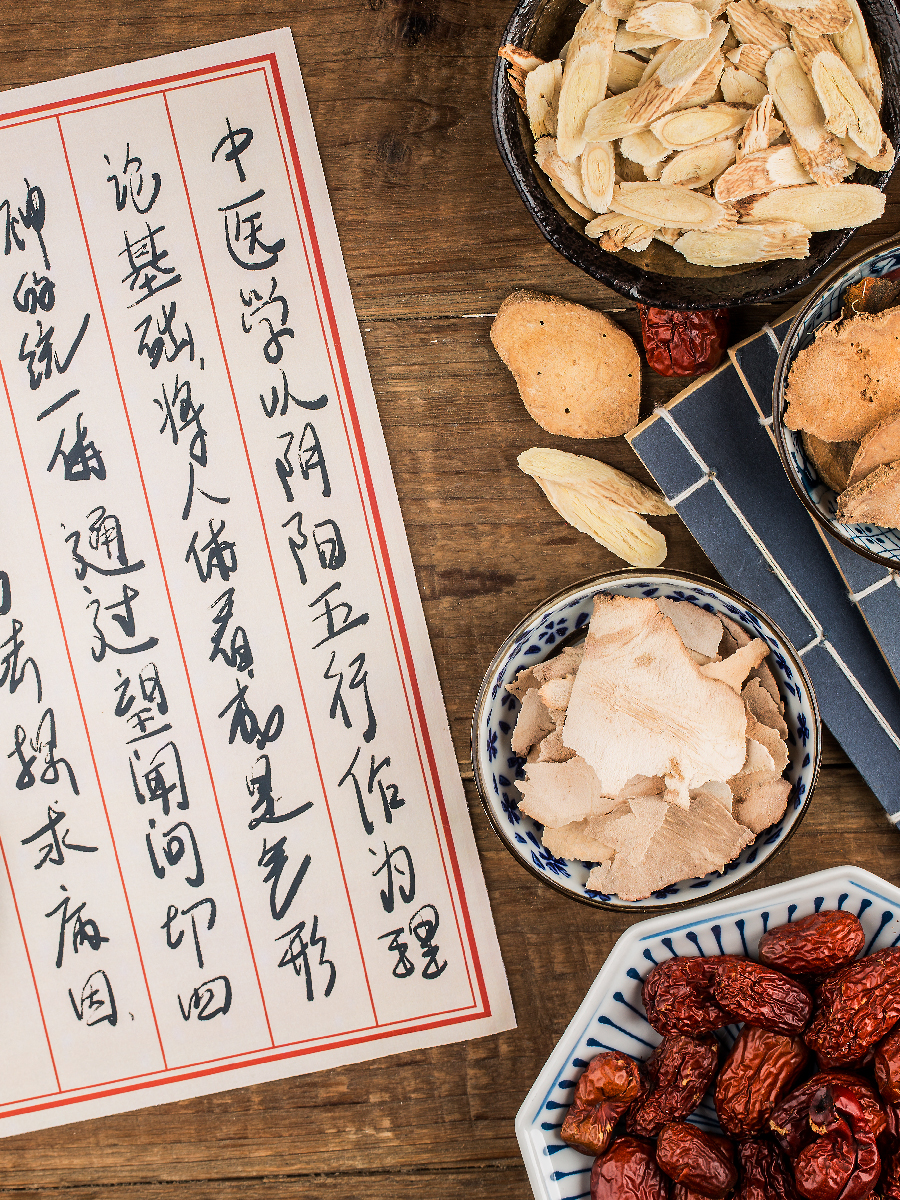 中医学以阴阳五行作为理
论基础,将人体看成是气形
神的统一体通过望闻问切四
法探求病因、